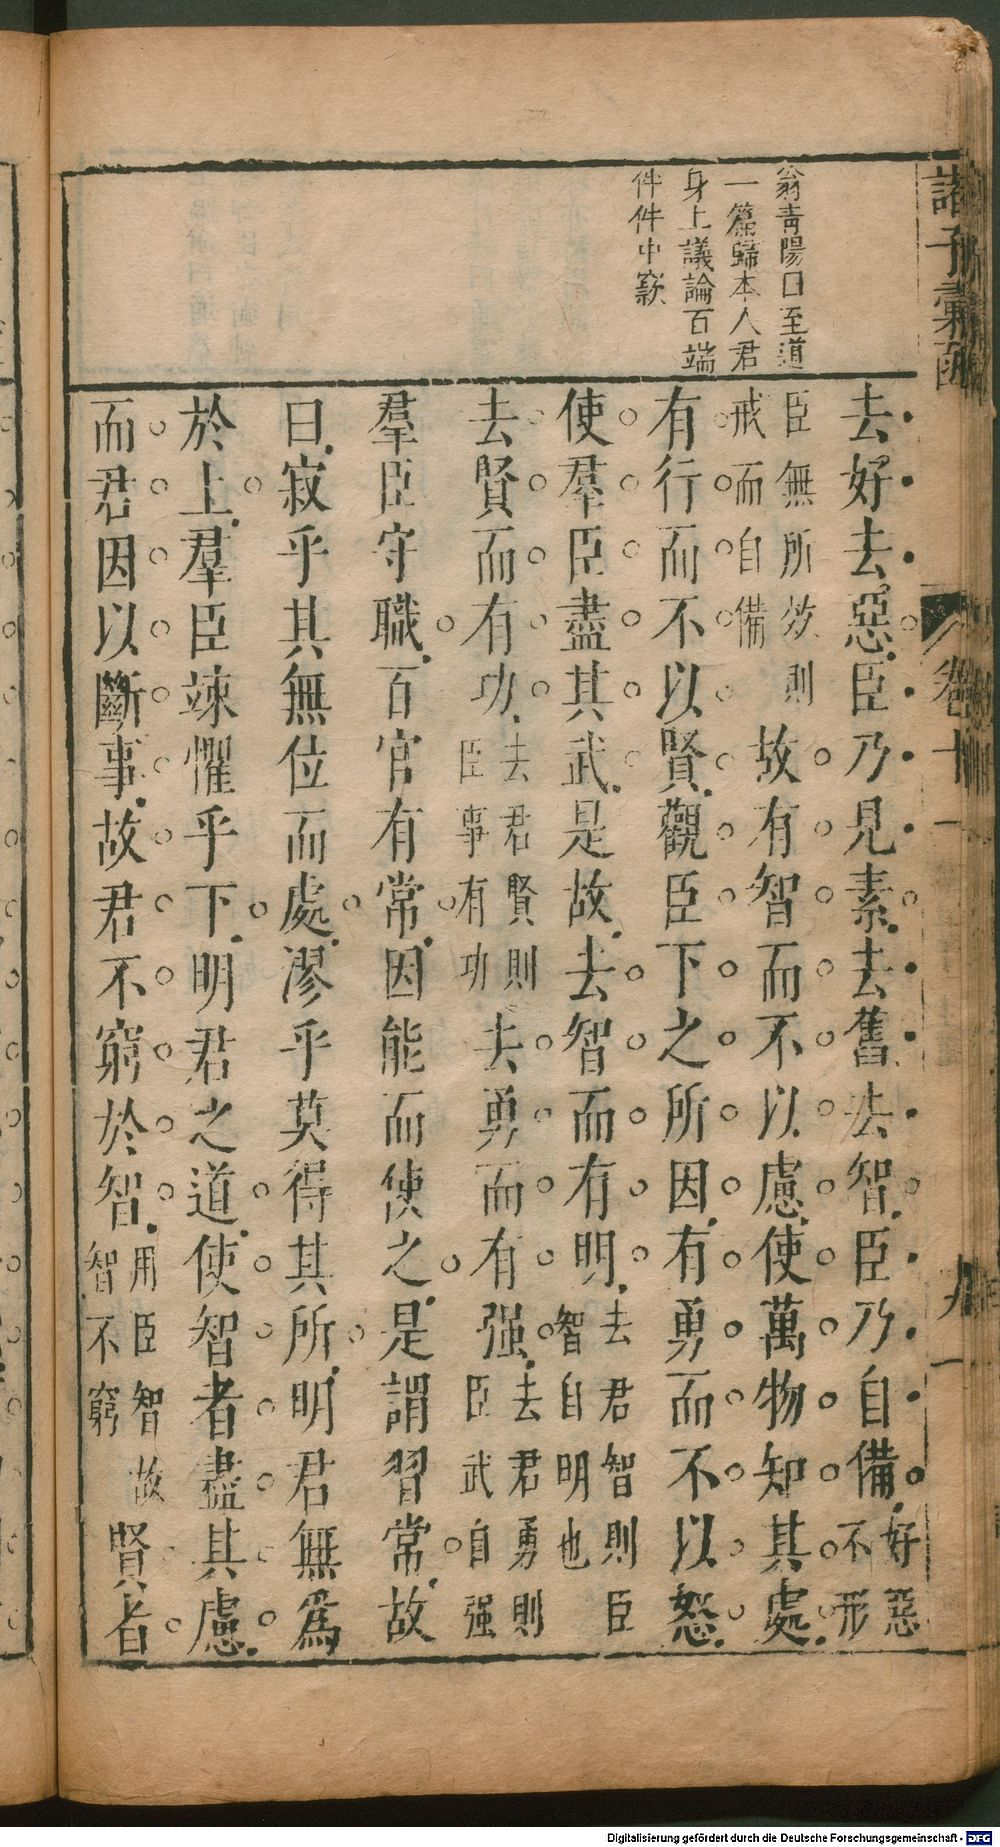 諸子彙函
卷十一
九一
翁青陽曰至道
一篇歸本人君
身上議論百端
件件中窾
去好去惡臣乃見素去舊去智臣乃自備好惡不形
臣無所效則戒而自備故有智而不以慮使萬物知其處
有行而不以賢觀臣下之所因有勇而不以怒
使羣臣盡其武是故去智而有明去君智則臣智自明也
去賢而有功去君賢則臣事有功去勇而有强去君勇則臣武自强
羣臣守職百官有常因能而使之是謂習常故
曰寂乎其無位而處漻乎莫得其所明君無爲
於上羣臣竦懼乎下明君之道使智者盡其慮
而君因以斷事故君不窮於智用臣智故智不窮賢者
Digitalisierung gefördert durch die Deutsche Forschungsgemeinschaft - DFG